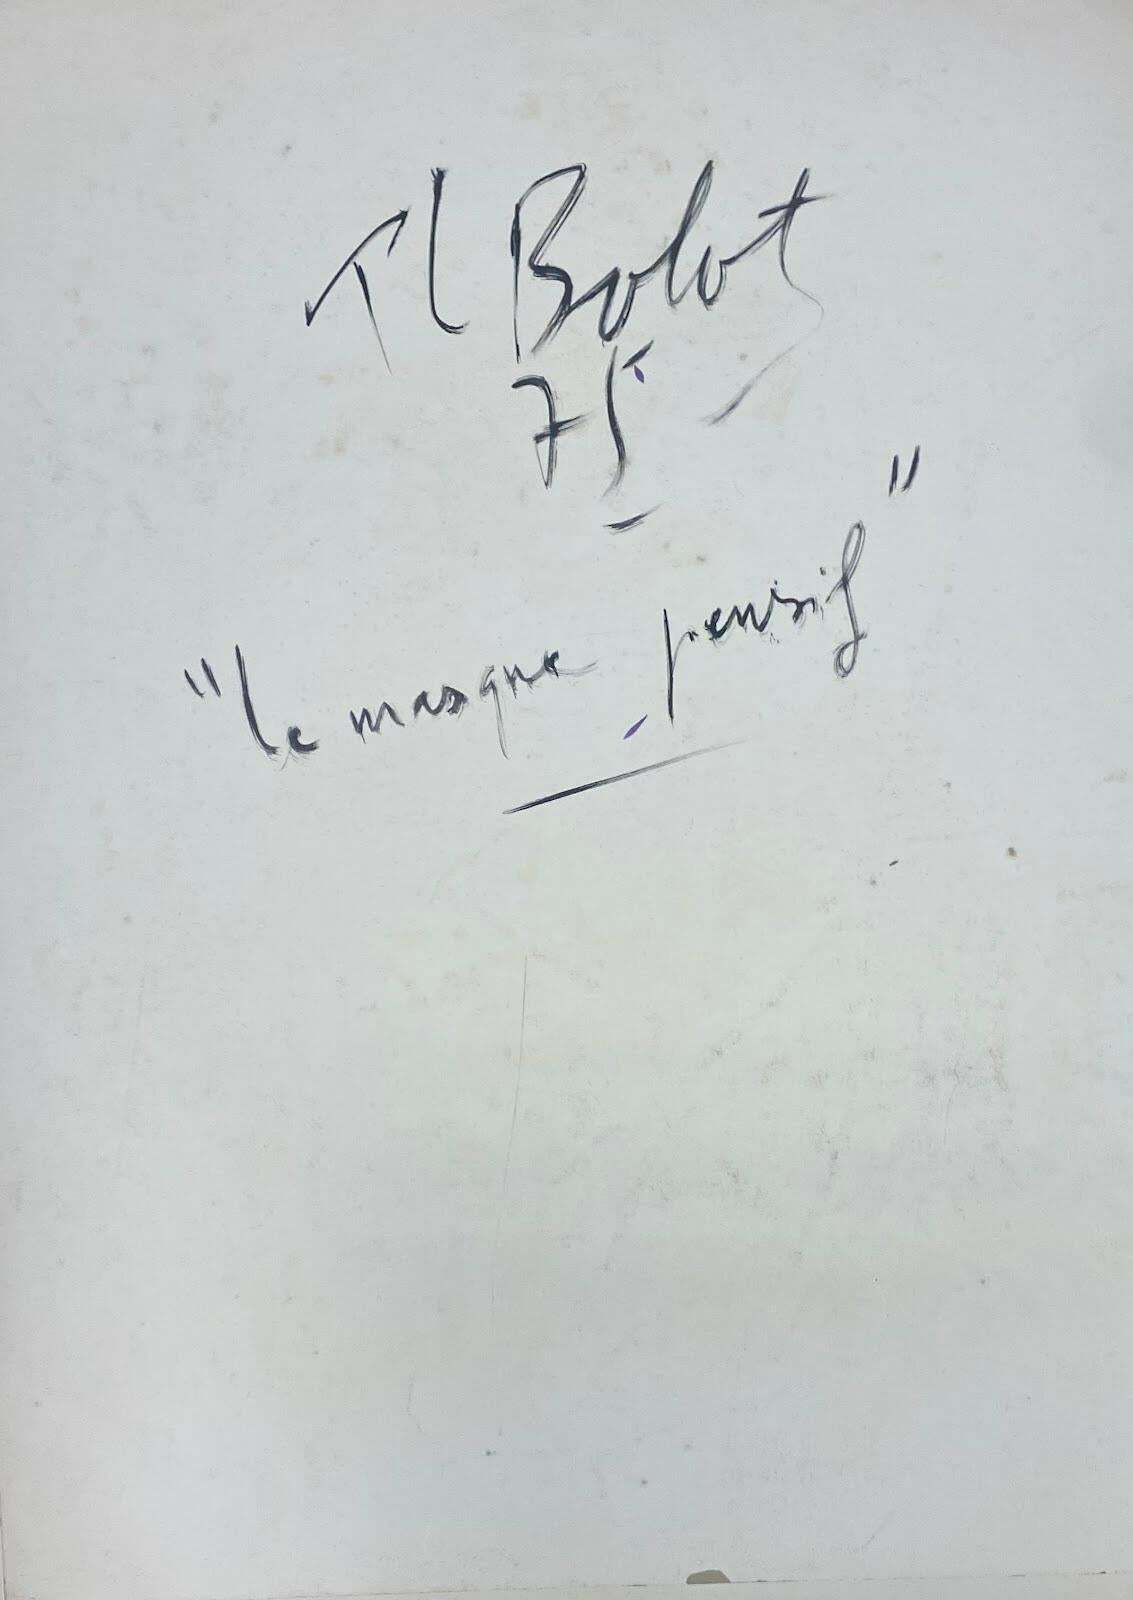 Tl Bolot
75
"le masque pensif"